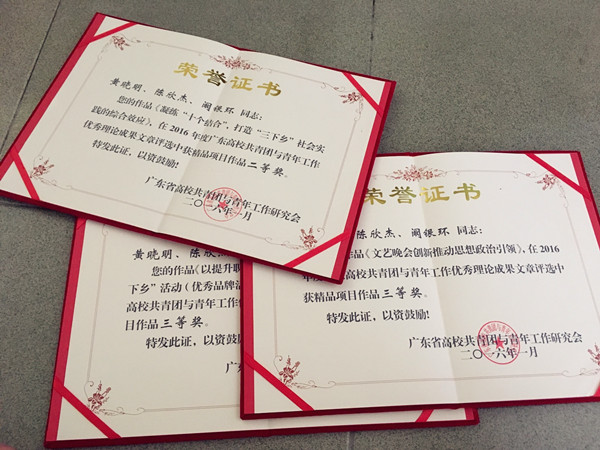 荣誉证书
黄晓明、陈欣杰、阚银环 同志：
您的作品《凝练“十个结合”，打造“三下乡”社会实
践的综合效应》，在2016年度广东高校共青团与青年工作
优秀理论成果文章评选中获精品项目作品二等奖。
特发此证，以资鼓励！
广东省高校共青团与青年工作研究会
二〇一六年一月
荣誉证书
陈欣杰、阚银环 同志：
作品《文艺晚会创新推动思想政治引领》，在2016
高校共青团与青年工作优秀理论成果文章评选中
获精品项目作品三等奖。
特发此证，以资鼓励！
广东省高校共青团与青年工作研究会
二〇一六年一月
黄晓明、陈欣杰、
您的作品《以提升职
下乡”活动（优秀品牌活
高校共青团与青年工作优
目作品三等奖。
特发此证，以资鼓励
广东省